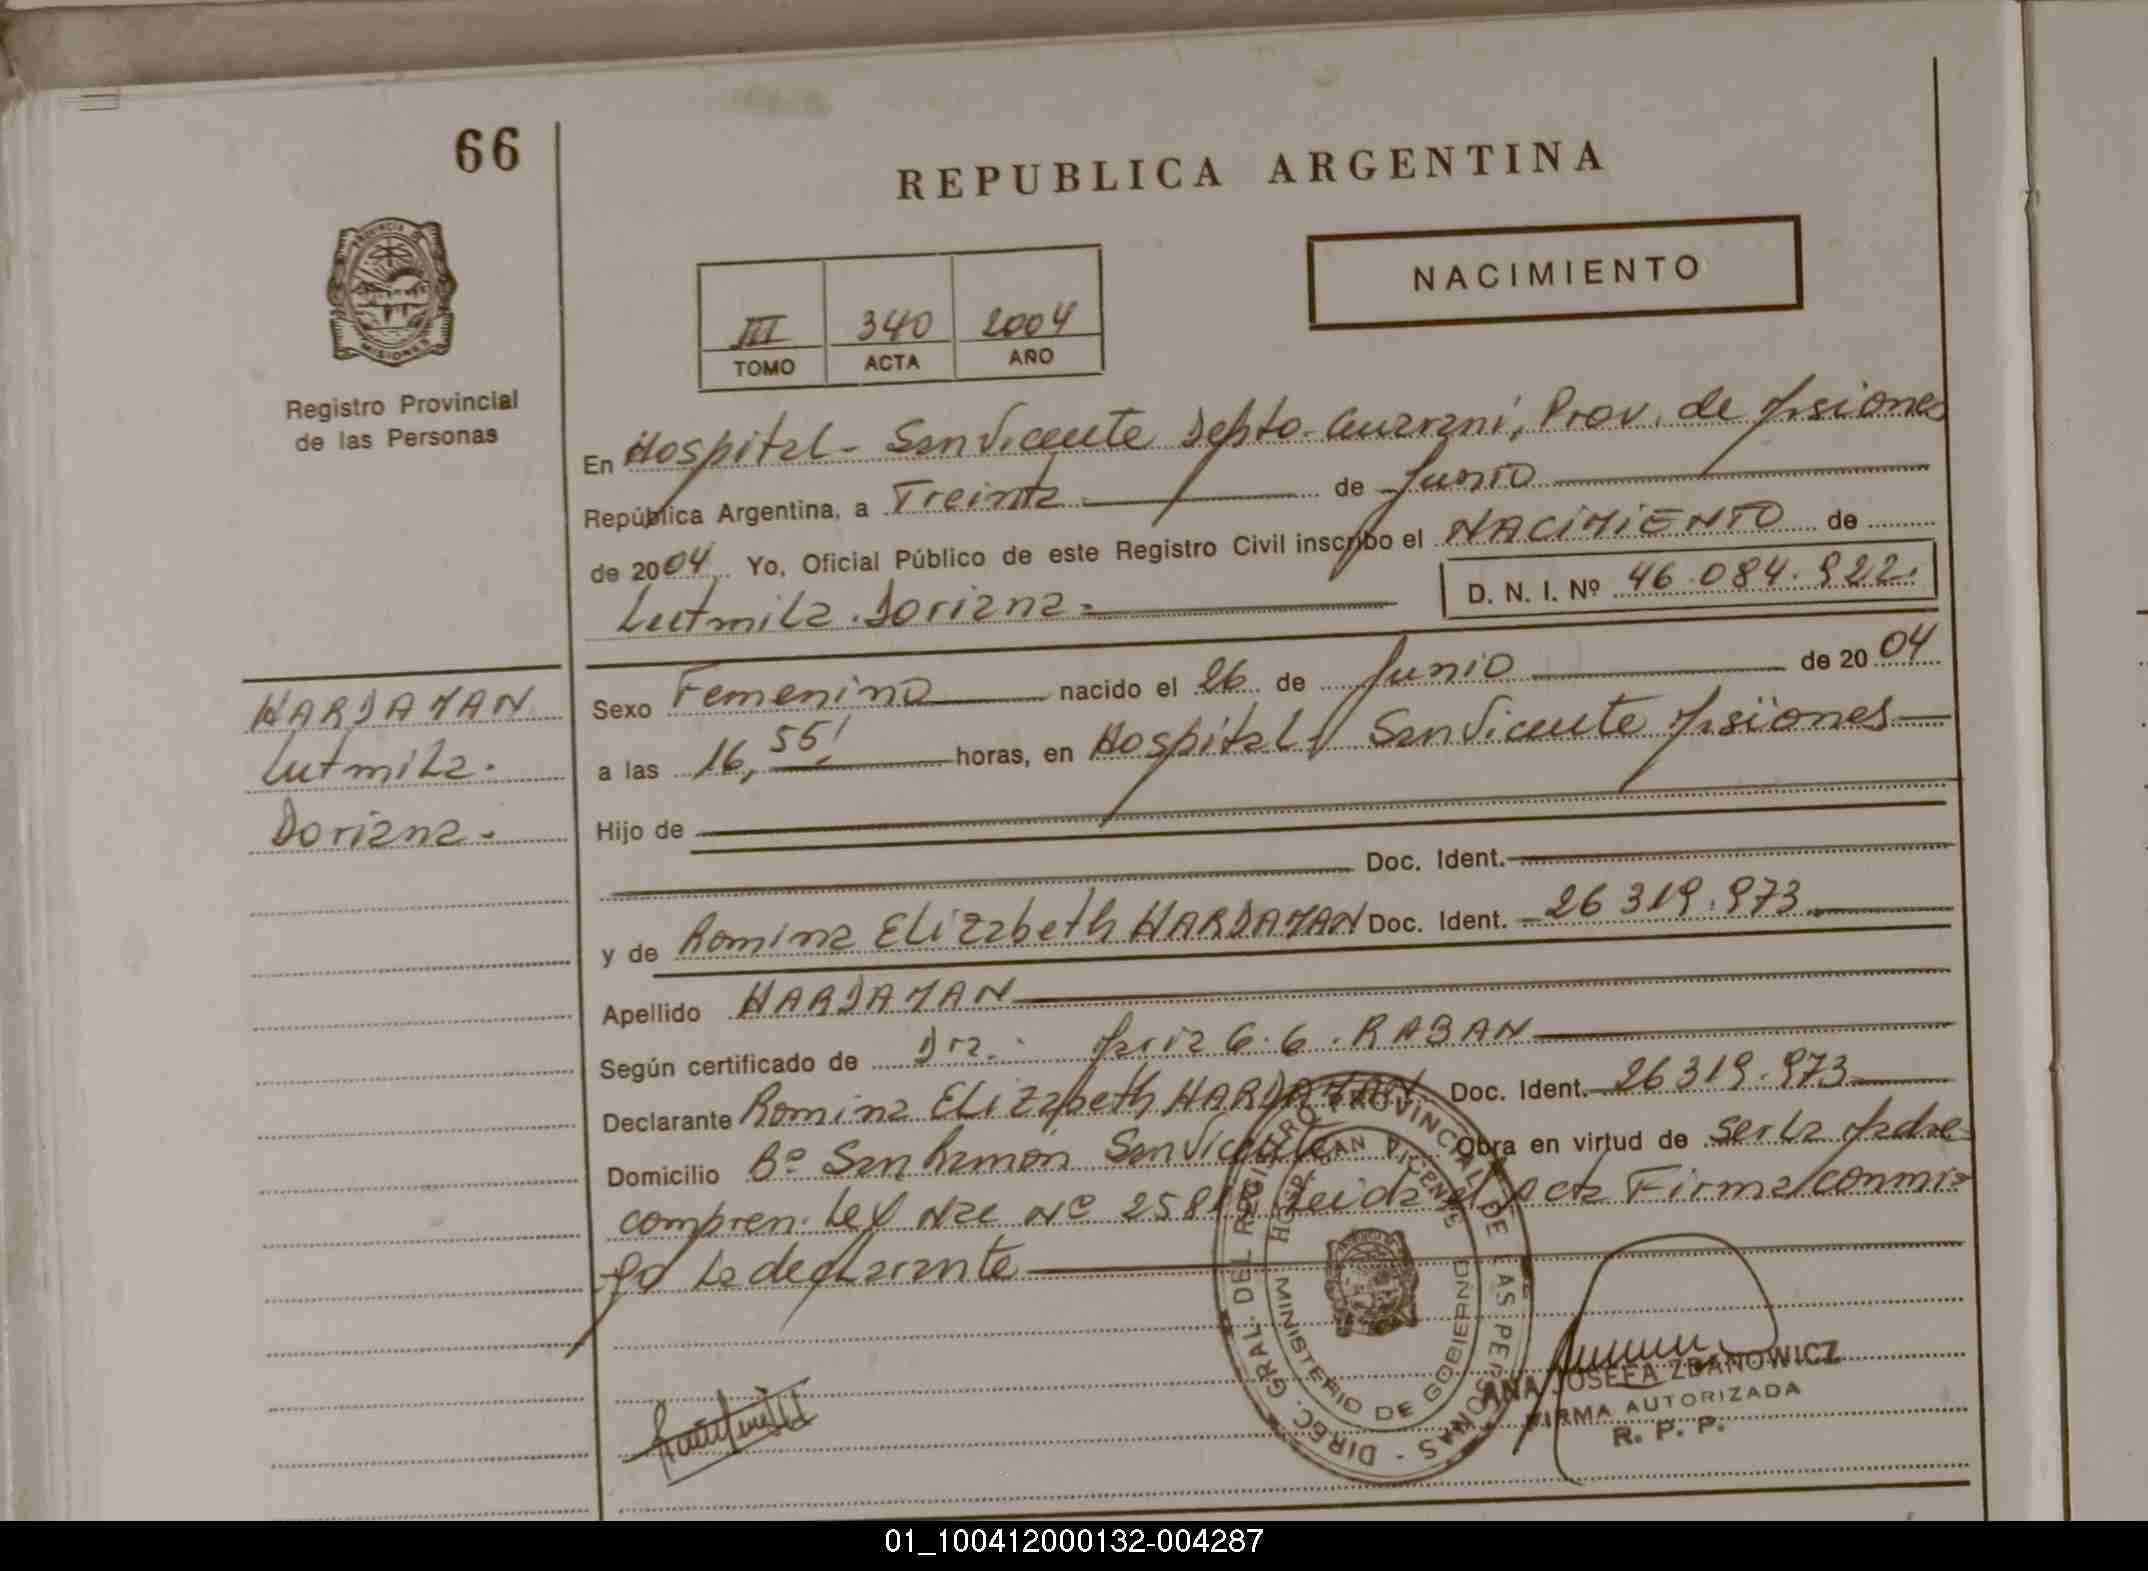 66
REPUBLICA ARGENTINA
NACIMIENTO
PROVINCIA DE
MISIONES
III 340 2004
TOMO ACTA AÑO
Registro Provincial
de las Personas
En Hospital - San Vicente Depto. Guarani, Prov. de Misiones
República Argentina, a Treinta de Junio
de 2004 Yo, Oficial Público de este Registro Civil inscribo el NACIMIENTO de
D. N. I. Nº 46.084.922.
Lutmila Doriana
HARDAMAN
Lutmila
Doriana
Sexo Femenino nacido el 26 de Junio de 2004
a las 16,55' horas, en Hospital - San Vicente Misiones
Hijo de
Doc. Ident.
y de Romina Elizabeth HARDAMAN Doc. Ident. 26 319.973
Apellido HARDAMAN
Según certificado de Dra. Maria G. G. RABAN
Declarante Romina Elizabeth HARDAMAN Doc. Ident. 26 319.973
Domicilio Bº San Ramón San Vicente Obra en virtud de ser la Madre
compren. Ley Nac Nº Leida el acta Firma conmi
go la declarante
DIREC. GRAL. DEL REGISTRO PROVINCIAL DE LAS PERSONAS
HOSP. SAN VICENTE
MINISTERIO DE GOBIERNO
ANA JOSEFA ZDANOWICZ
FIRMA AUTORIZADA
R. P. P.
01_100412000132-004287